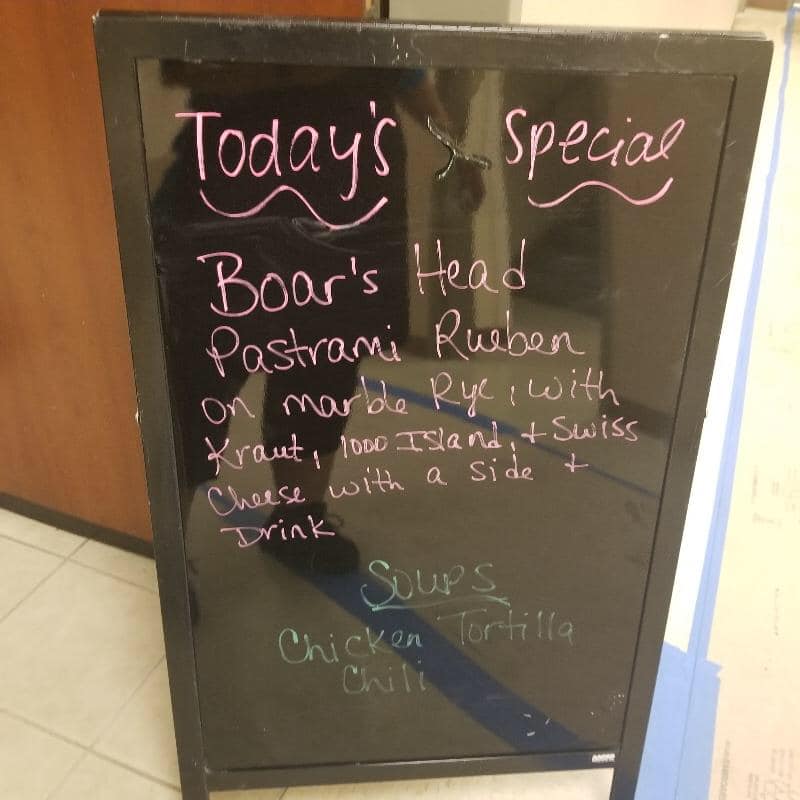 Today's Special
Boar's Head
Pastrami Rueben
on marble Rye, with
Kraut, 1000 Island, + Swiss
Cheese with a side +
Drink
Soups
Chicken Tortilla
Chili